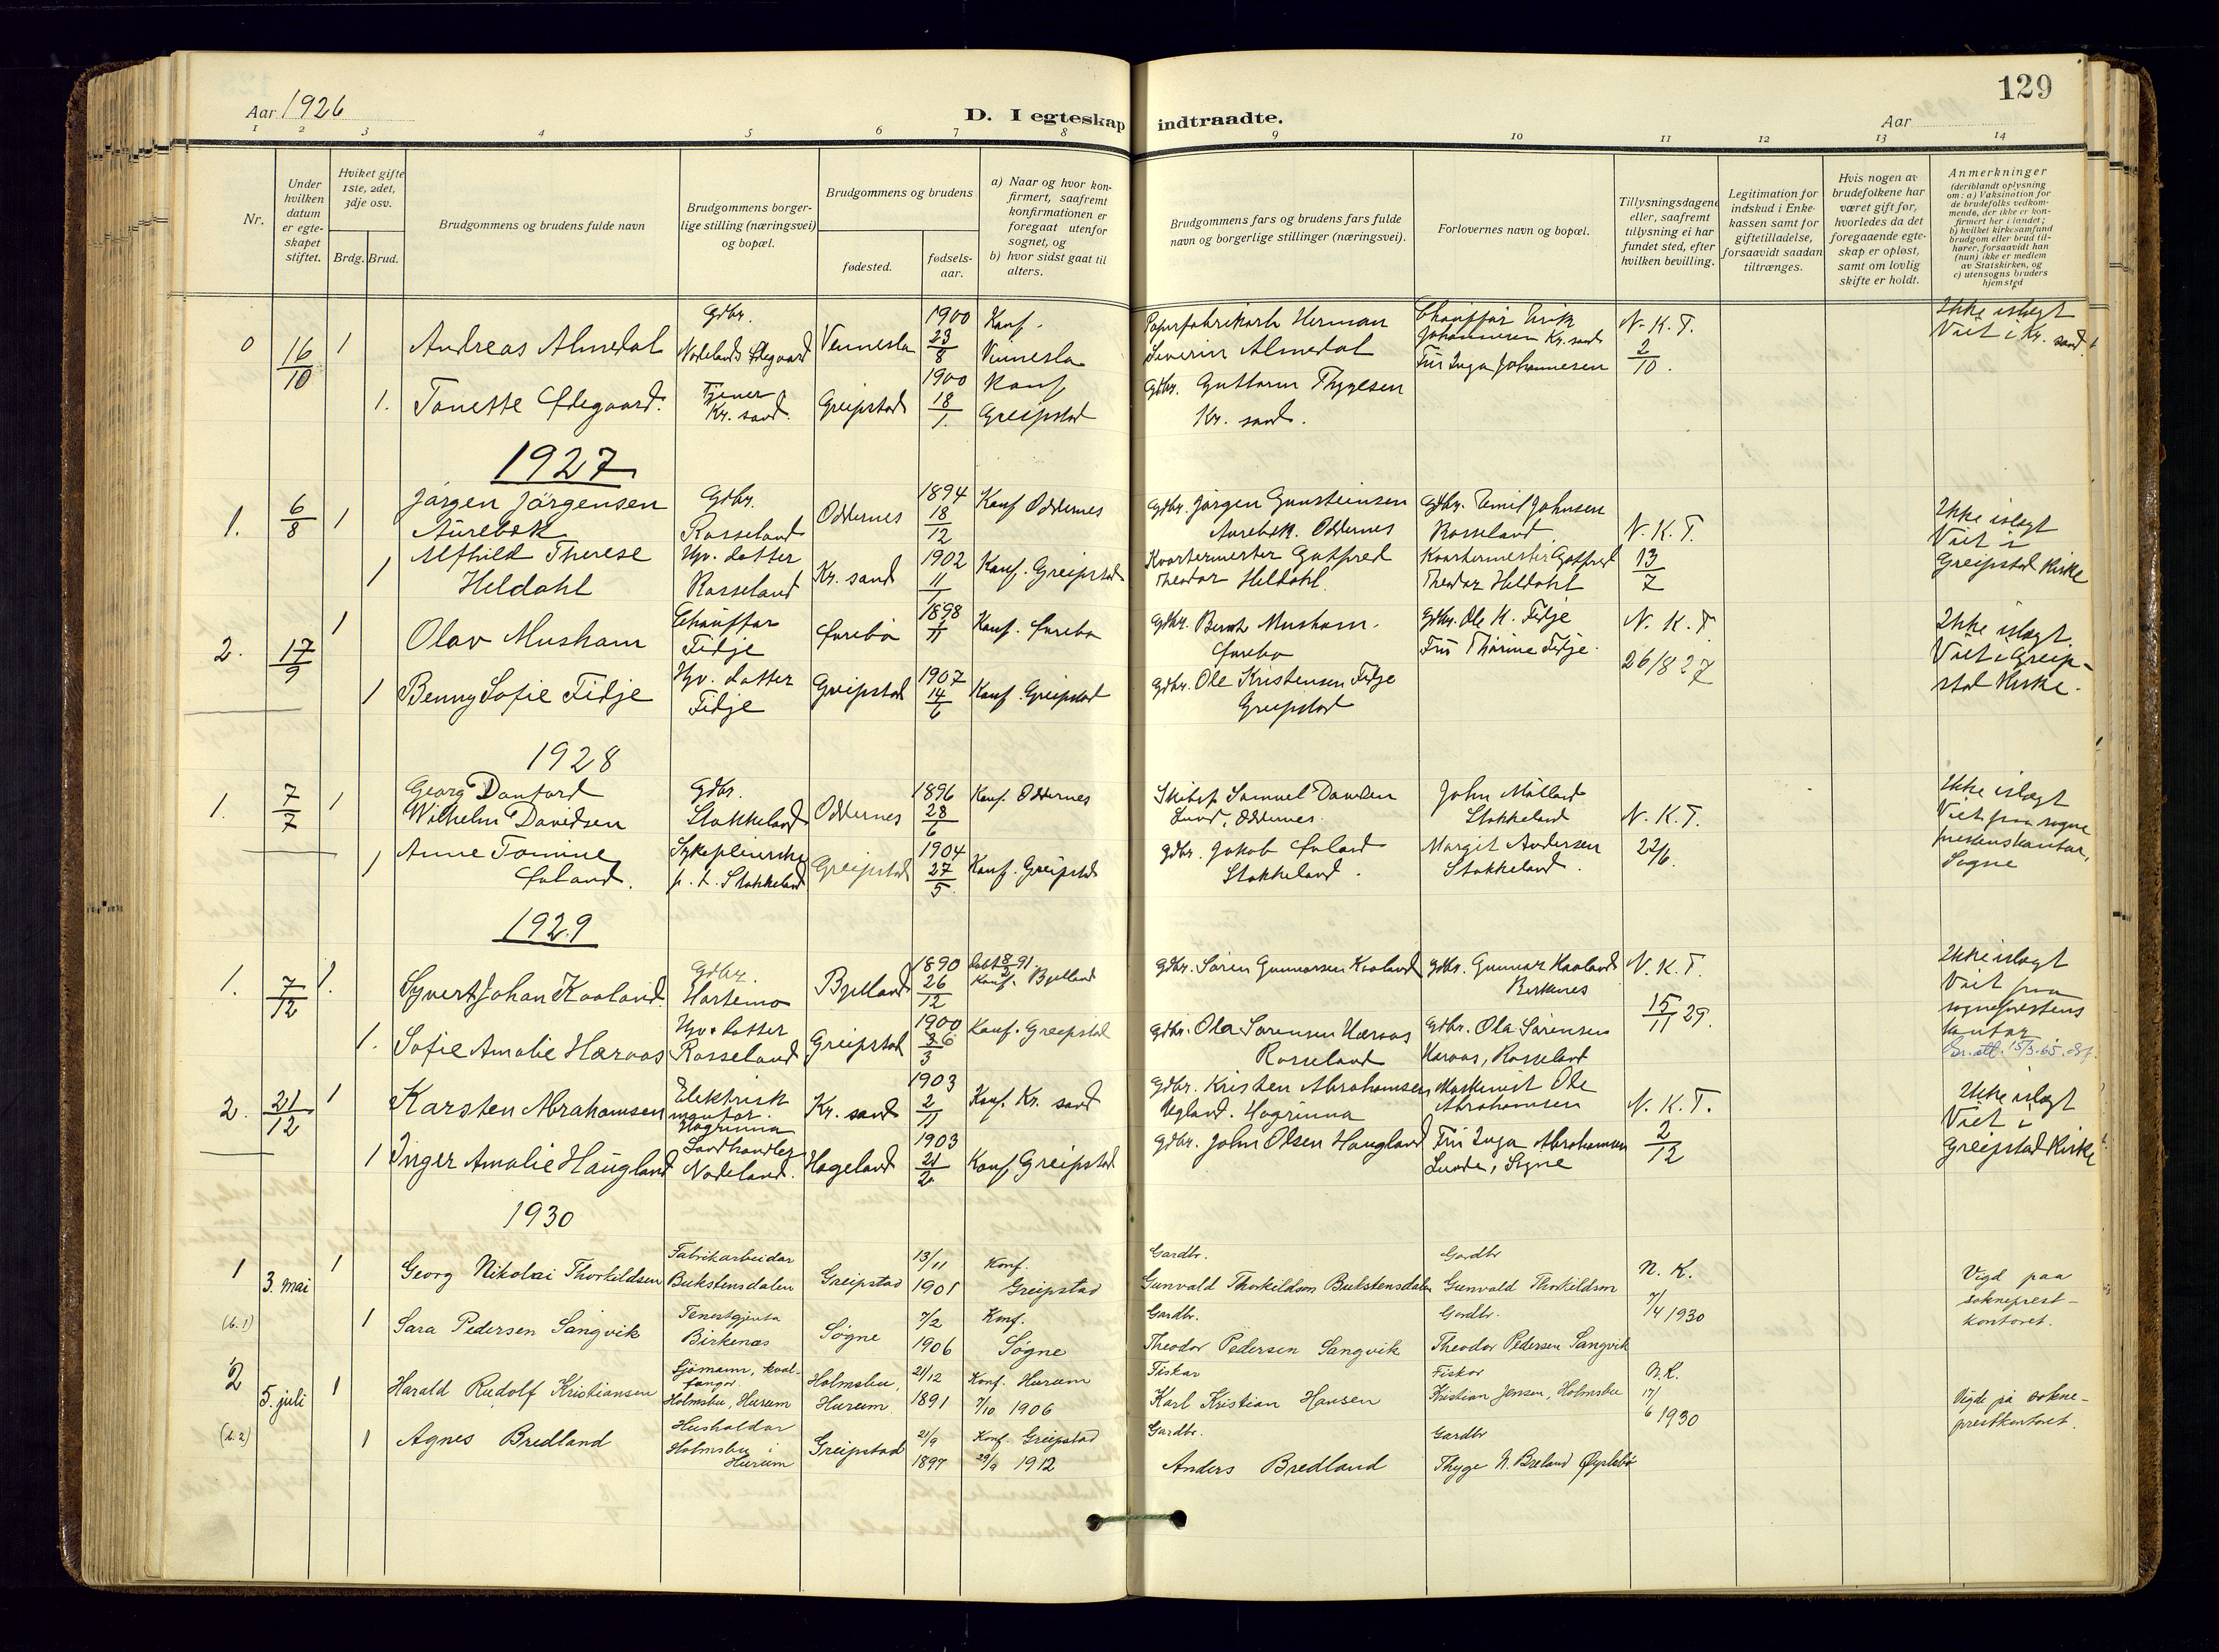 129
Aar 1926
D. I egteskap indtraadte.
Aar
1 2 3 4 5 6 7 8 9 10 11 12 13 14
Nr.
Under hvilken datum er egteskapet stiftet.
Hviket gifte 1ste, 2det, 3dje osv.
Brdg. Brud.
Brudgommens og brudens fulde navn
Brudgommens borgerlige stilling (næringsvei) og bopæl.
Brudgommens og brudens
fødested.
fødselsaar.
a) Naar og hvor konfirmert, saafremt konfirmationen er foregaat utenfor sognet, og
b) hvor sidst gaat til alters.
Brudgommens fars og brudens fars fulde navn og borgerlige stillinger (næringsvei).
Forlovernes navn og bopæl.
Tillysningsdagene eller, saafremt tillysning ei har fundet sted, efter hvilken bevilling.
Legitimation for indskud i Enkekassen samt for giftetilladelse, forsaavidt saadan tiltrænges.
Hvis nogen av brudefolkene har været gift før, hvorledes da det foregaaende egteskap er opløst, samt om lovlig skifte er holdt.
Anmerkninger
(deriblandt oplysning om: a) Vaksination for de brudefolks vedkommende, der ikke er konfirmert her i landet; b) hvilket kirkesamfund brudgom eller brud tilhører, forsaavidt han (hun) ikke er medlem av Statskirken, og c) utensogns bruders hjemsted
0 16/10 1 Andreas Almedal Gdbr. Nodeland Ødegaard Vennesla 1900 23/8 Konf. Vennesla
Herman Severin Almedal Chauffør Erik Johannesen Kr. sand Frú Inga Johannesen N. K. T. 2/10. Ikke i slægt Viet i Kr. sand
1. Tonette Ødegaard. Tjener Kr. sand. Greipstad 1900 18/1. Konf Greipstad
Gdbr. Guttorm Thygesen Kr. sand.
1927
1. 6/8 1 Jørgen Jörgensen Aúrebek Gdbr. Rosseland Oddernes 1894 18/12 Konf Oddernes
Gdbr. Jörgen Gunsteinsen Aurebek. Oddernes Gdbr. Emil Johnsen Rosseland N. K. T. 13/7 Ikke i slægt Viet i Greipstad Kirke
1 Alfhild Therese Heldahl Hjv. datter Rosseland Kr. sand 1902 11/1 Konf. Greipstad
Kvartermester Gotfred Theodor Heldahl. Kvartermester Gotfred Theodor Heldahl
2. 17/9 1 Olav Musham Chauffør Fidje Øvrebø 1898 1/11 Konf. Øvrebø
Gdbr. Bernh Musham. Øvrebø Gdbr. Ole K. Fidje Frú Thorine Fidje. N. K. T 26/8 27 Ikke i slægt Viet i Greipstad Kirke.
1 Benny Sofie Fidje Hjv. datter Fidje Greipstad 1907 14/6 Konf. Greipstad
Gdbr. Ole Kristensen Fidje Greipstad
1928
1. 7/7 1 Georg Danford Wilhelm Davidsen Gdbr. Stokkeland Oddernes 1896 28/6 Konf. Oddernes
Samuel Davidsen Lund, Oddernes. John Målland Stokkeland N. K. T. 22/6. Ikke i slægt Viet fra sogneprestenskontor, Søgne
1 Anne Tomine Øvland. Sykepleierske p. t. Stokkeland Greipstad 1904 27/5. Konf. Greipstad
Gdbr. Jakob Øvland Stokkeland. Margit Andersen Stokkeland.
1929
1. 7/12 1. Syvert Johan Kaaland. Gdbr. Hortemo Bjelland 1890 26/12 Døbt 8/2 91. Konf. Bjelland
Gdbr. Sören Gunnarsen Kaaland Gdbr. Gunnar Kaaland Birkenes N. K. T. 15/11 29. Ikke i slægt Viet fra sogneprestens kontor.
1. Sofie Amalie Høraas Hjv. datter Rosseland Greipstad 1900 26/3 Konf. Greipstad
Gdbr. Ola Sørensen Høraas Rosseland Gdbr. Ola Sørensen Høraas, Rosseland 15/3-65.
2. 21/12 1 Karsten Abrahamsen Elektrisk montør. Hogrinna Kr. sand 1903 2/11 Konf. Kr. sand
Gdbr. Kristen Abrahamsen Vegland. Hogrinna Maskinist Ole Abrahamsen N. K. T. 2/12 Ikke i slægt Viet i Greipstad Kirke
1 Inger Amalie Haugland Landhandler Nodeland. Hægeland 1903 21/2 Konf. Greipstad
Gdbr. John Olsen Haugland Frú Inga Abrahamsen Lunde, Søgne
1930
1 3. mai 1 Georg Nikolai Thorkildsen Fabrikarbeidar Bukstensdalen Greipstad 13/11 1901 Konf. Greipstad
Gardbr. Gunvald Thorkildson Bukstensdalen Gardbr Gunvald Thorkildson N. K. 7/4 1930 Vigd paa sokneprestkontoret.
(b. 1) 1 Sara Pedersen Sangvik Tenestgjenta Birkenæs Søgne 7/2 1906 Konf. Søgne
Gardbr. Theodor Pedersen Sangvik Gardbr. Theodor Pedersen Sangvik
2 5. juli 1 Harald Rudolf Kristiansen Sjömann, kvalfanger. Holmsbu, Hurum Holmsbu, Hurum 21/12 1891 Konf. Hurum 7/10 1906
Fiskar Karl Kristian Hansen Fiskar Kristian Jensen, Holmsbu N. K. 17/6 1930 Vigde på sokneprestkontoret.
(b. 2) 1 Agnes Bredland Husholdar Holmsbu i Hurum Greipstad 21/9 1897 Konf. Greipstad 29/9 1912
Gardbr. Anders Bredland Gardbr Thyge N. Breland Øyslebø